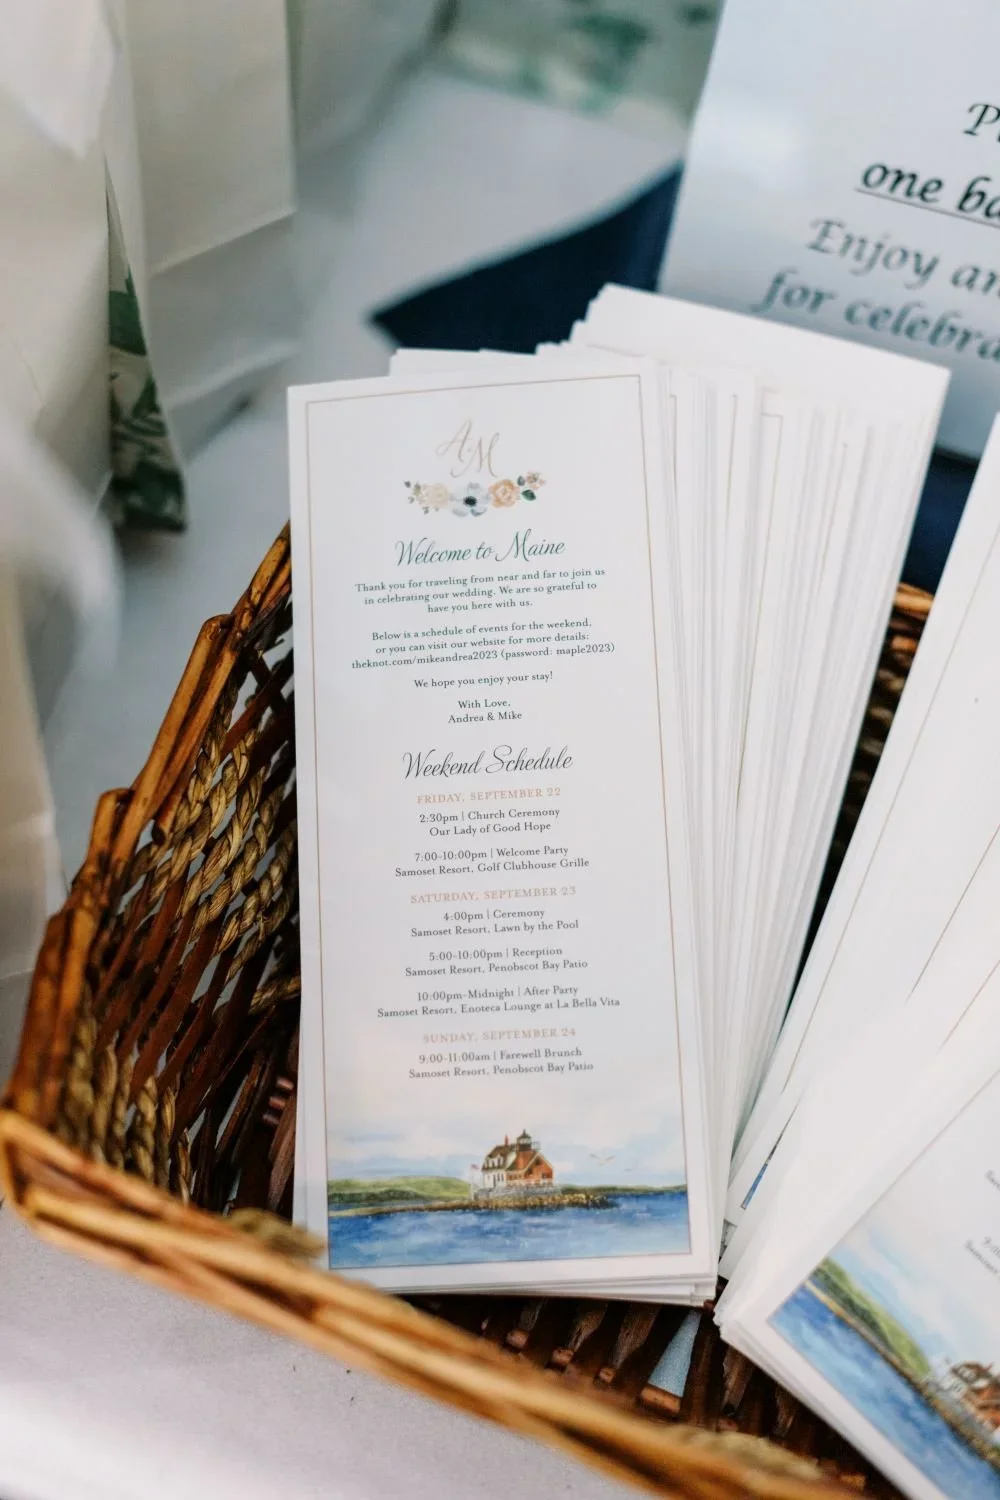 one
Enjoy
for
A·M
Welcome to Maine
Thank you for traveling from near and far to join us
in celebrating our wedding. We are so grateful to
have you here with us.
Below is a schedule of events for the weekend,
or you can visit our website for more details:
theknot.com/mikeandrea2023 (password: maple2023)
We hope you enjoy your stay!
With Love,
Andrea & Mike
Weekend Schedule
FRIDAY, SEPTEMBER 22
2:30pm | Church Ceremony
Our Lady of Good Hope
7:00-10:00pm | Welcome Party
Samoset Resort, Golf Clubhouse Grille
SATURDAY, SEPTEMBER 23
4:00pm | Ceremony
Samoset Resort, Lawn by the Pool
5:00-10:00pm | Reception
Samoset Resort, Penobscot Bay Patio
10:00pm-Midnight | After Party
Samoset Resort, Enoteca Lounge at La Bella Vita
SUNDAY, SEPTEMBER 24
9:00-11:00am | Farewell Brunch
Samoset Resort, Penobscot Bay Patio